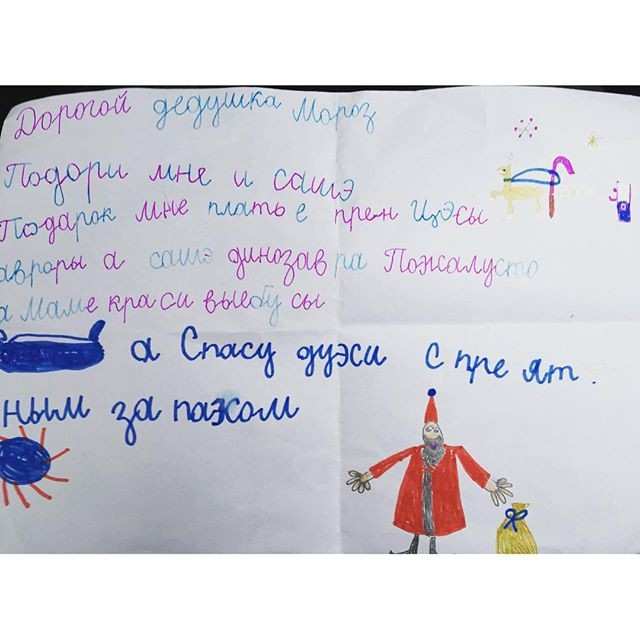 Дорогой дедушка Мороз
Подори мне и сашэ
Подарок мне плать е прен цэсы
авроры а сашэ динозав ра Пожалусто
а маме краси вые бу сы
а Спасу дуэси с пре ят.
ным за пахом